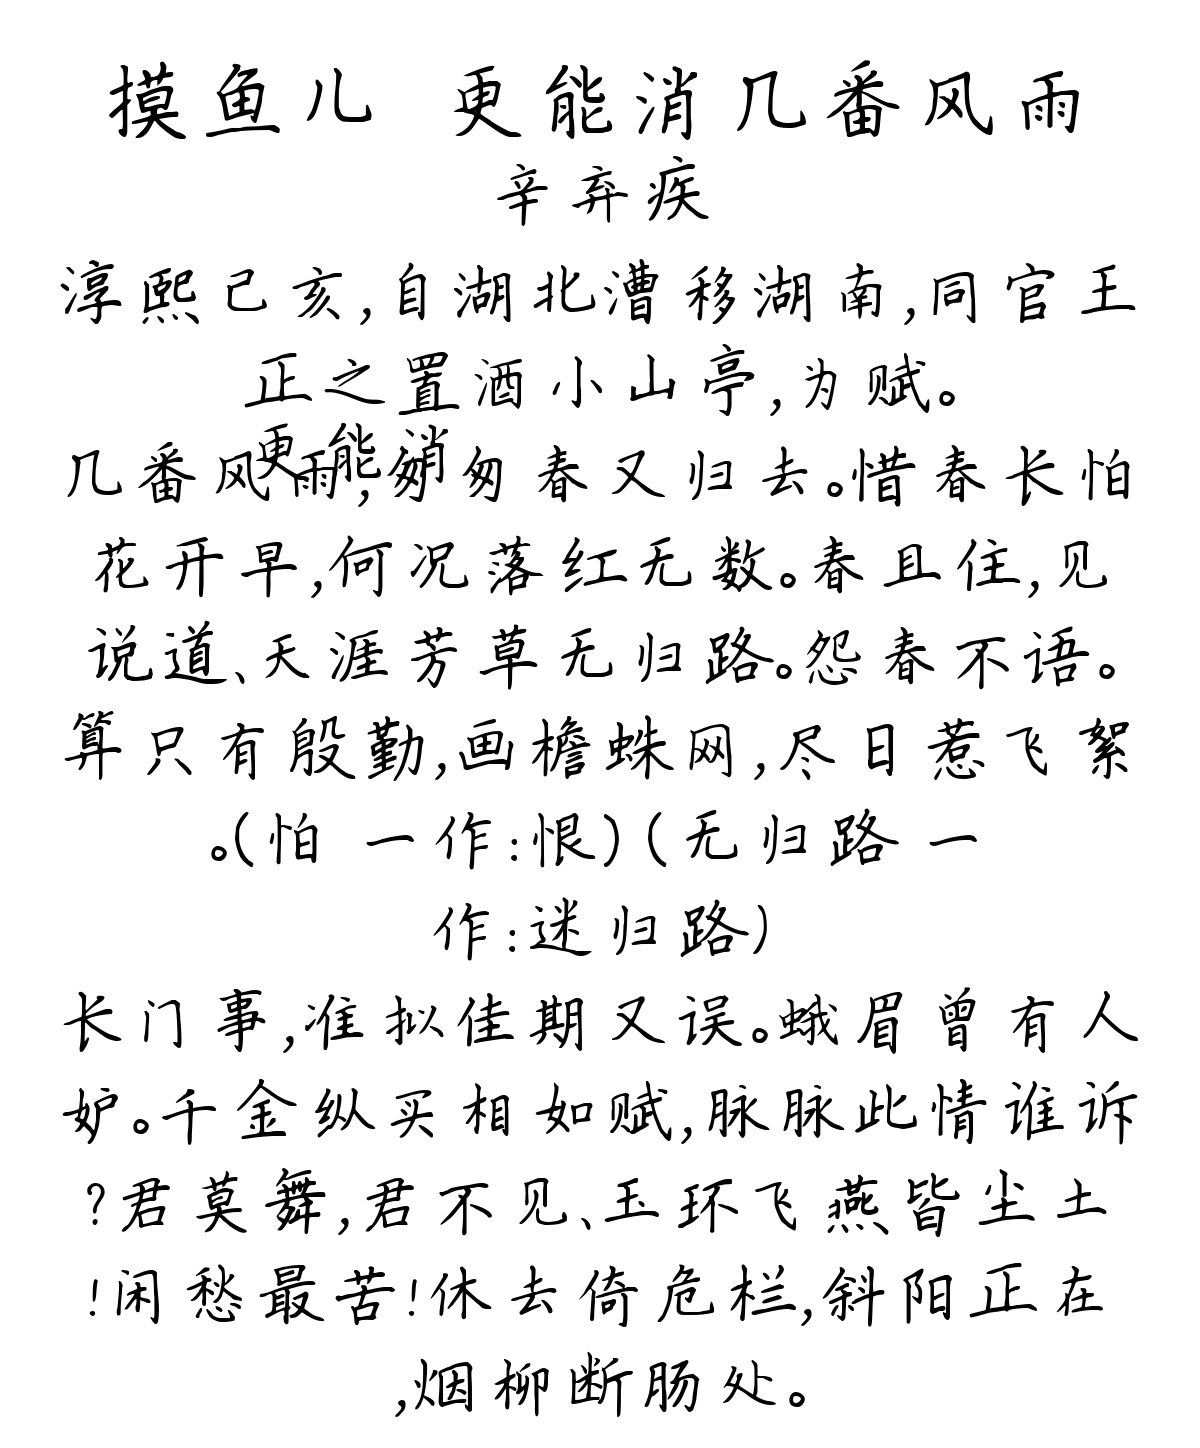 摸鱼儿 更能消几番风雨
辛弃疾
淳熙己亥,自湖北漕移湖南,同官王
正之置酒小山亭,为赋。
更能消
几番风雨,匆匆春又归去。惜春长怕
花开早,何况落红无数。春且住,见
说道、天涯芳草无归路。怨春不语。
算只有殷勤,画檐蛛网,尽日惹飞絮
。(怕 一作:恨)(无归路 一
作:迷归路)
长门事,准拟佳期又误。蛾眉曾有人
妒。千金纵买相如赋,脉脉此情谁诉
?君莫舞,君不见、玉环飞燕皆尘土
!闲愁最苦!休去倚危栏,斜阳正在
,烟柳断肠处。